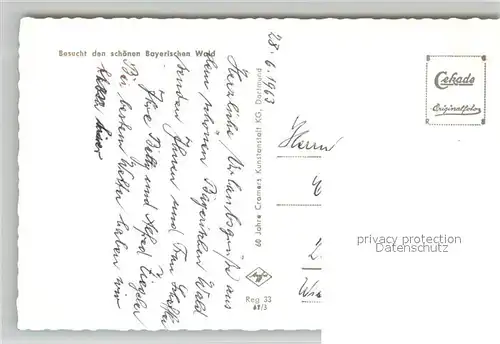 Besucht den schönen Bayerischen Wald
28.6.1963
Herzliche Urlaubsgrüße aus
dem schönen Bayerischen Wald
senden Ihnen und Frau
Ihre Betty und Alfred Ziegler
Bei bestem Wetter haben wir
60 Jahre Cramers Kunstanstalt KG, Dortmund
Reg 33
61/3
Cekade
Originalfoto
Herrn
privacy protection
Datenschutz